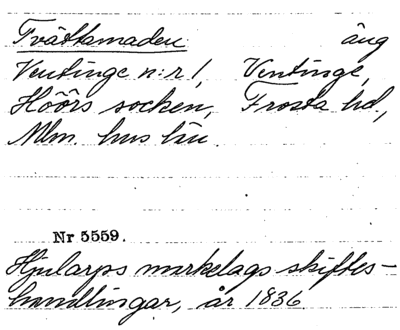 Tvättamaden äng
Ventinge n:r 1, Ventinge,
Höörs socken, Frosta hd.,
Mlm. hus län.
Nr 5559.
Hjularps markelags skiftes-
handlingar, år 1836.